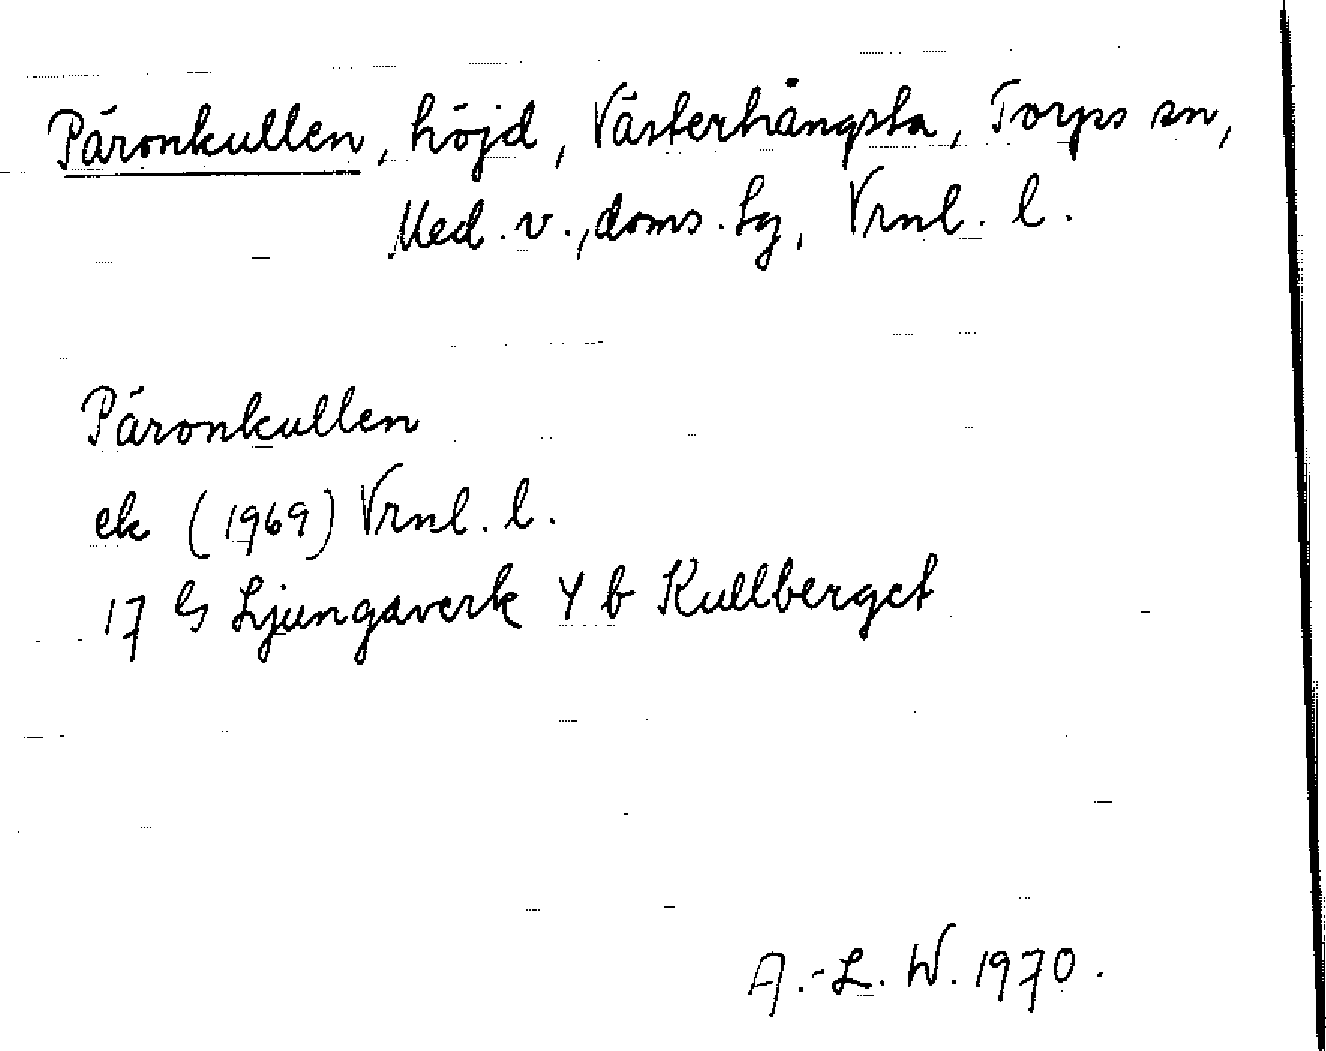 Päronkullen, höjd, Västerhångsta, Torps sn,
Med. v., doms. lg, Vrnl. l.
Päronkullen
ek (1969) Vrnl. l.
17 G Ljungaverk Y b Kullberget
A.-L. W. 1970.